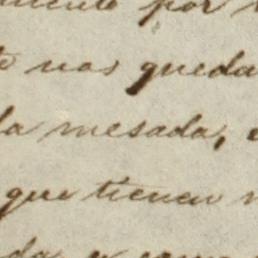 por
nos queda
la mesada,
que tienen